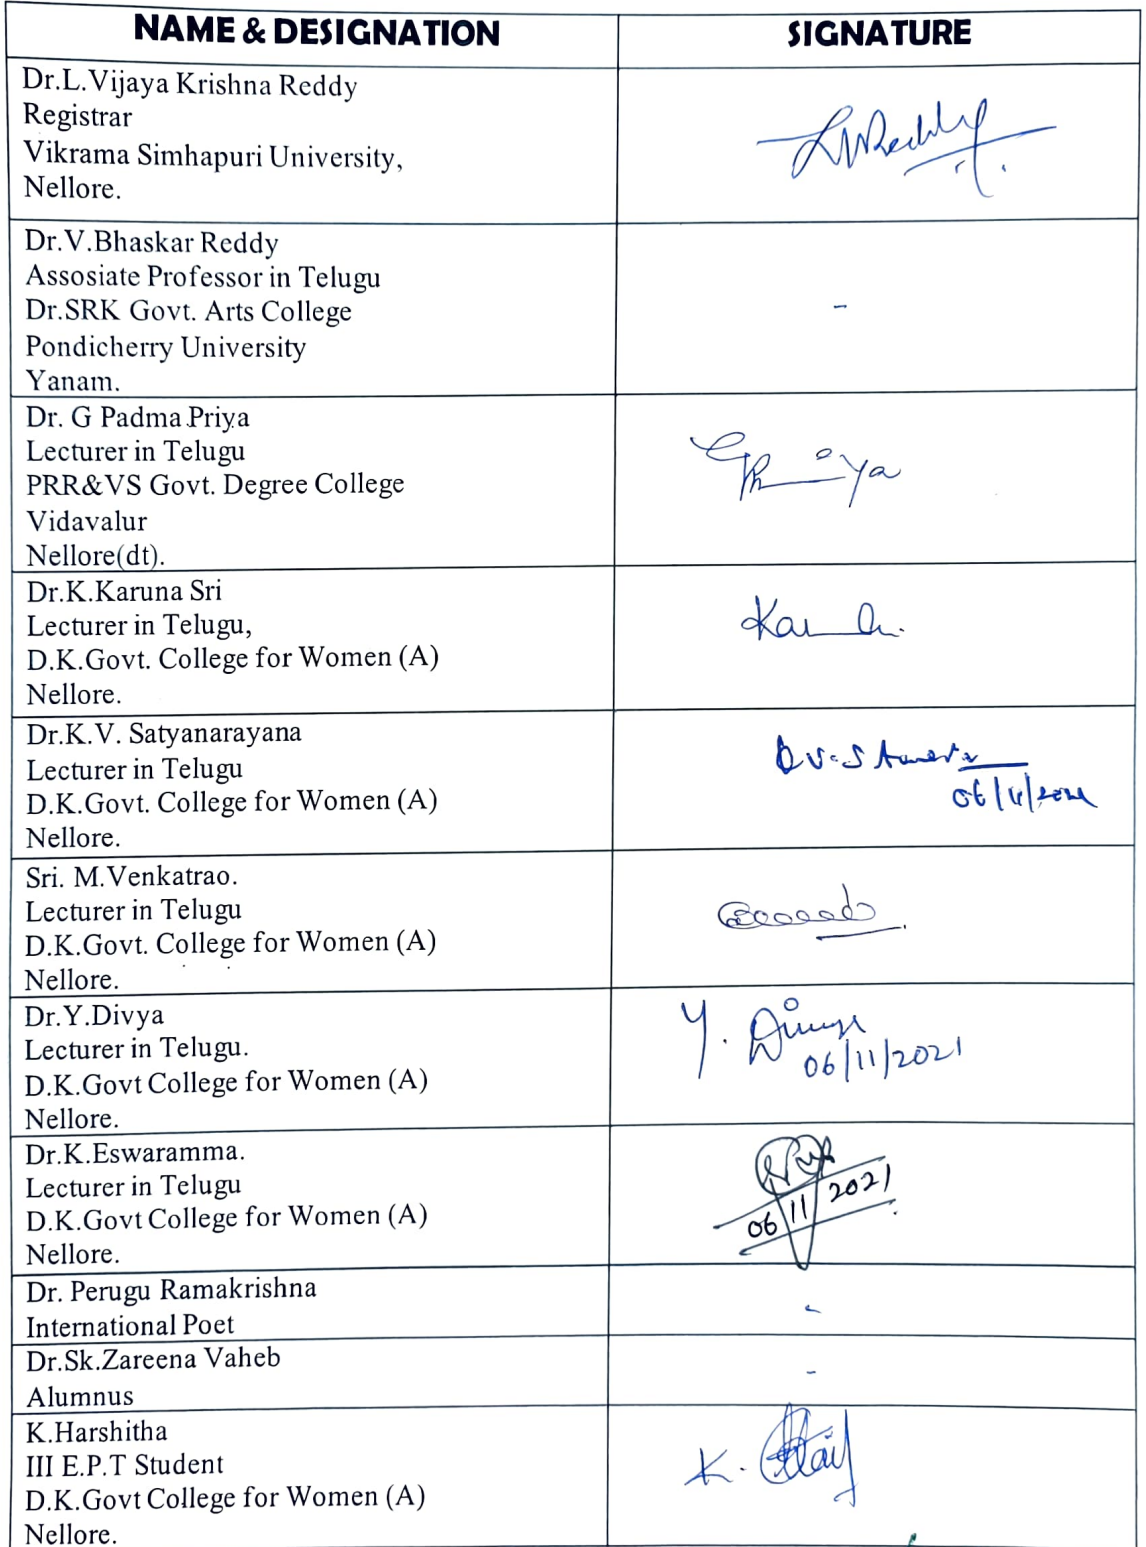 NAME & DESIGNATION
SIGNATURE
Dr.L.Vijaya Krishna Reddy
Registrar
Vikrama Simhapuri University,
Nellore.
LVReddy
Dr.V.Bhaskar Reddy
Assosiate Professor in Telugu
Dr.SRK Govt. Arts College
Pondicherry University
Yanam.
-
Dr. G Padma Priya
Lecturer in Telugu
PRR&VS Govt. Degree College
Vidavalur
Nellore(dt).
Dr.K.Karuna Sri
Lecturer in Telugu,
D.K.Govt. College for Women (A)
Nellore.
Dr.K.V. Satyanarayana
Lecturer in Telugu
D.K.Govt. College for Women (A)
Nellore.
06/11/2021
Sri. M.Venkatrao.
Lecturer in Telugu
D.K.Govt. College for Women (A)
Nellore.
Dr.Y.Divya
Lecturer in Telugu.
D.K.Govt College for Women (A)
Nellore.
Y.
06/11/2021
Dr.K.Eswaramma.
Lecturer in Telugu
D.K.Govt College for Women (A)
Nellore.
06/11/2021
Dr. Perugu Ramakrishna
International Poet
-
Dr.Sk.Zareena Vaheb
Alumnus
-
K.Harshitha
III E.P.T Student
D.K.Govt College for Women (A)
Nellore.
K.